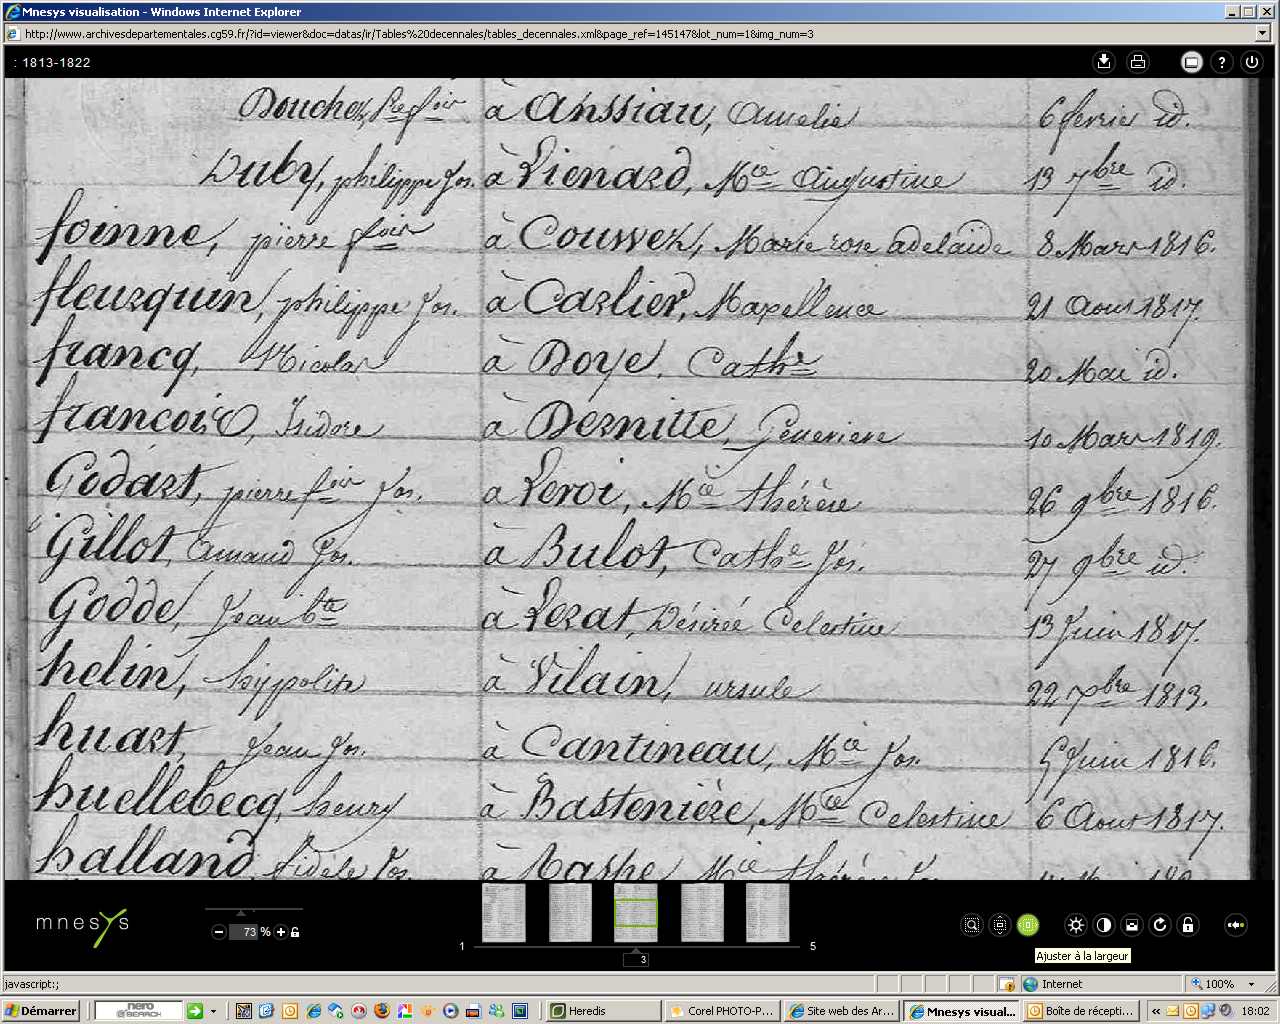 Mnesys visualisation - Windows Internet Explorer
http://www.archivesdepartementales.cg59.fr/?id=viewer&doc=datas/ir/Tables%20decennales/tables_decennales.xml&page_ref=145147&lot_num=1&img_num=3
: 1813-1822
Douchez, fois à Anssiau, Amelie 6 fevrier id.
Duby, philippe Jos. à Lienard, Mie Augustine 13 7bre id.
foinne, pierre fois à Couvvez, Marie rose adelaide 8 Mars 1816.
fleurquin, philippe Jos. à Carlier, Maxellence 21 Aout 1817.
francq, Nicolas à Doye, Cathe 20 Mai id.
francois, Isidore à Dernitte, Genevieve 10 Mars 1819.
Godart, pierre fois Jos. à Leroi, Mie thérèse 26 9bre 1816.
Gillot, Amand Jos. à Bulot, Cathe Jos. 27 9bre id.
Godde, Jean bte à Lezat, Désirée Celestine 13 Juin 1817.
helin, hyppolite à Vilain, ursule 22 7bre 1813.
huart, Jean Jos. à Cantineau, Mie Jos. 5 Juin 1816.
huellebecq, henry à Bastenière, Mie Celestine 6 Aout 1817.
halland, fidèle Jos. à Mie thérèse
mnesys
73 %
1 5
3
Ajuster à la largeur
javascript:;
Internet 100%
Démarrer nero SEARCH Heredis Corel PHOTO-P... Site web des Ar... Mnesys visual... Boîte de récepti... « 18:02